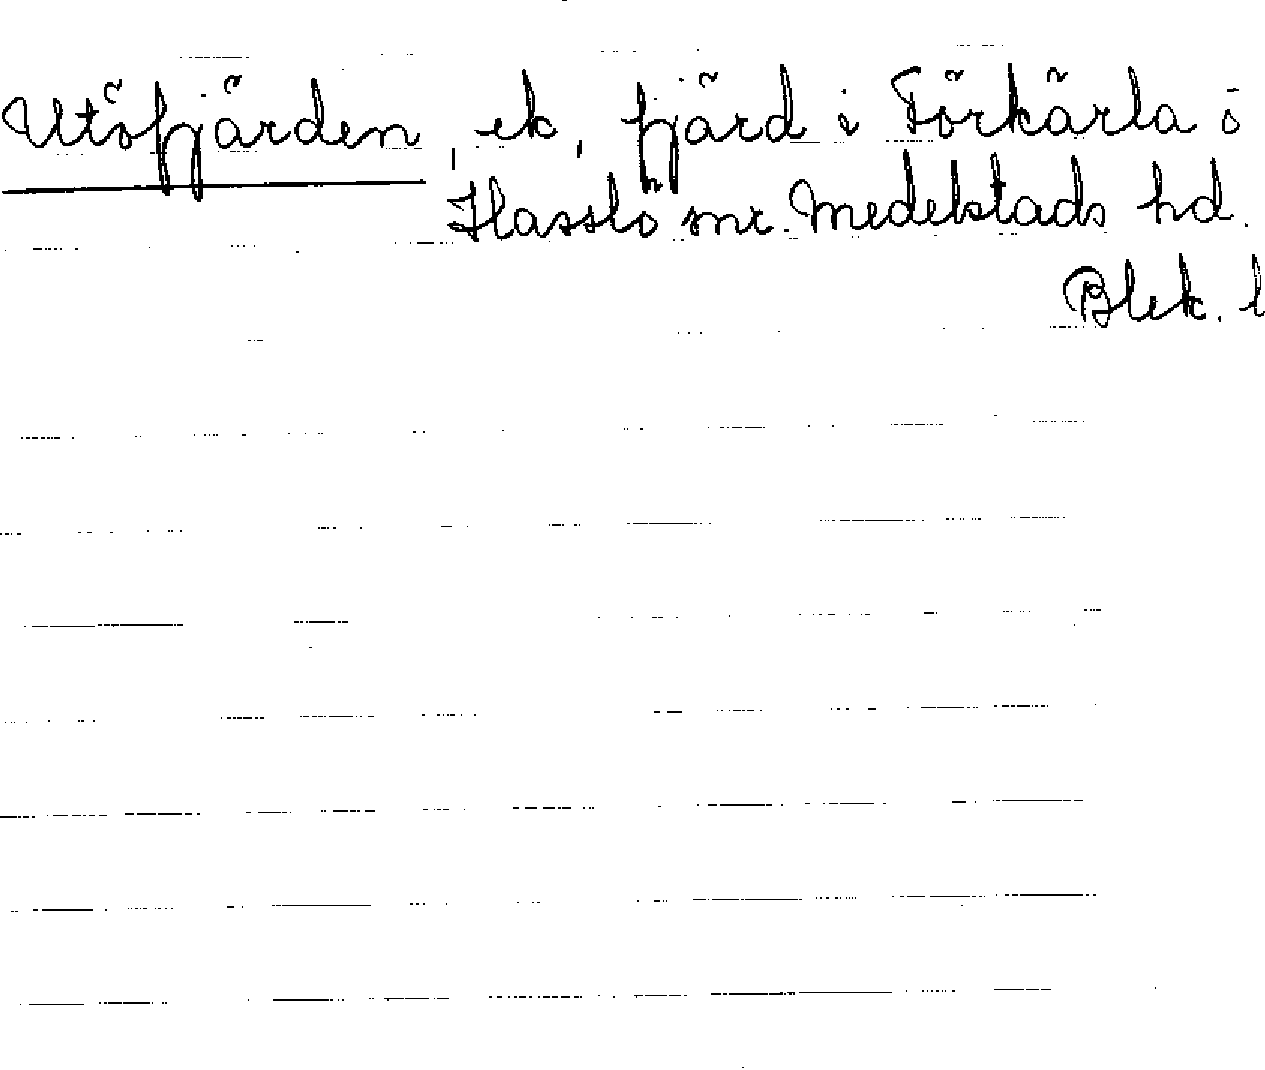 Utöfjärden, ek, fjärd i Förkärla o
Hasslö snr. Medelstads hd.
Blek. l